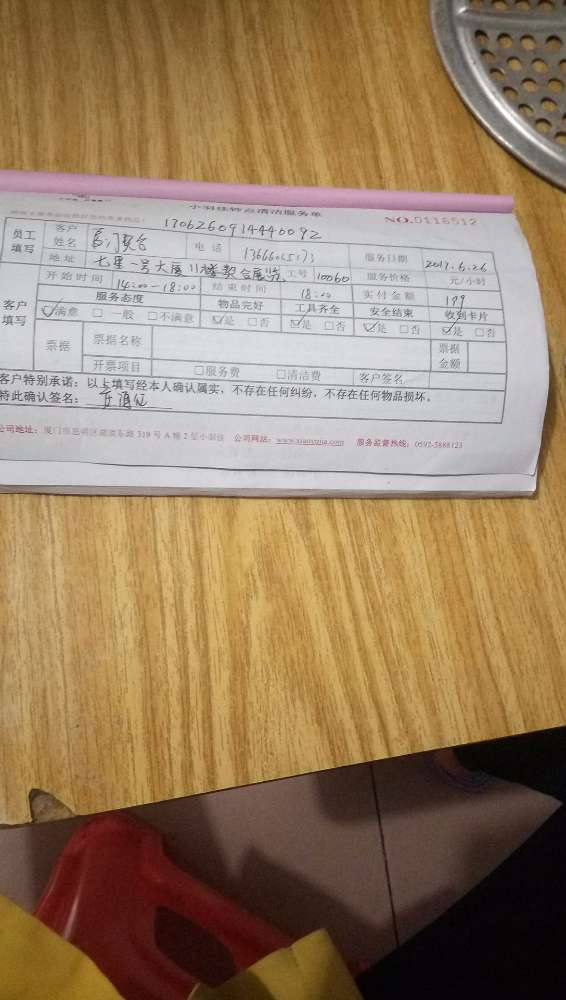 小羽佳钟点清洁服务单
NO.5116512
1706260914440092
员工填写 客户姓名 电话 服务日期 2017.6.26
地址 七星一号大厦11楼契合展览 工号 10060 服务价格 元/小时
开始时间 14:00-18:00 结束时间 18:00 实付金额 199
客户填写 服务态度 物品完好 工具齐全 安全结束 收到卡片
☑满意 □一般 □不满意 ☑是 □否 ☑是 □否 ☑是 □否 ☑是 □否
票据 票据名称 票据金额
开票项目 □服务费 □清洁费 客户签名
客户特别承诺：以上填写经本人确认属实，不存在任何纠纷，不存在任何物品损坏。
特此确认签名：
公司地址：厦门市思明区湖滨东路 319 号 A 幢 2 层小羽佳 公司网站：www.xiaoyujia.com 服务监督热线：0592-5888123